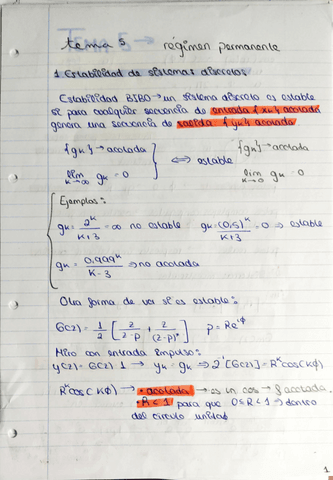 tema 5 → régimen permanente
1. Estabilidad de sistemas discretos
Estabilidad BIBO → un sistema discreto es estable
si para cualquier secuencia de entrada {xk} acotada
genera una secuencia de salida {yk} acotada
{gk} → acotada
lim k→∞ gk = 0
⇔ estable
{gk} → acotada
lim k→∞ gk = 0
Ejemplos:
gk = 2^k / k+3 = ∞ no estable gk = (0,5)^k / k+3 = 0 → estable
gk = 0.999^k / k-3 → no acotada
Otra forma de ver si es estable:
G(z) = 1/2 [ z/(z-p) + z/(z-p)* ] p = Re^iΦ
Miro con entrada impulso:
y(z) = G(z) 1 → yk = gk ⇒ z^-1 [G(z)] = R^k cos(kΦ)
R^k cos(kΦ) → • acotada → es un cos → acotada.
• R < 1 para que 0 ≤ R < 1 → dentro
del círculo unitario
1